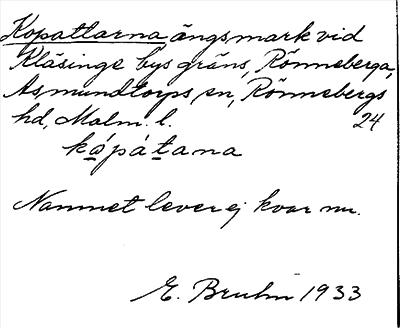 Kopattarna ängsmark vid
Kläsinge bys gräns, Rönneberga,
Asmundtorps sn, Rönnebergs
hd, Malm. l. 24
kǫ́pátana
Namnet lever ej kvar nu.
E. Bruhn 1933